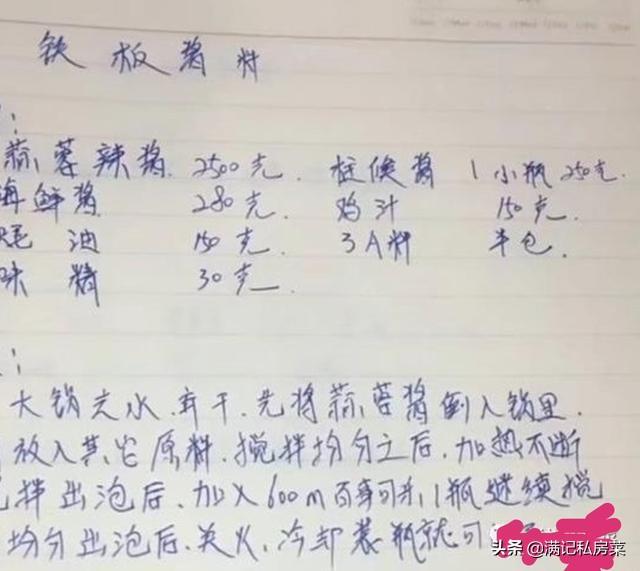 铁板酱料
：
蒜蓉辣酱 2500克. 柱候酱 1小瓶 250克.
海鲜酱 280克. 鸡汁 150克.
蚝油 150克. 3A料 半包.
味精 30克.
：
大锅去水.弄干.先将蒜蓉酱倒入锅里.
放入其它原料.搅拌均匀之后.加热不断
拌出泡后.加入600m百事可乐1瓶继续搅
均匀出泡后.关火.冷却装瓶就可
头条 @满记私房菜